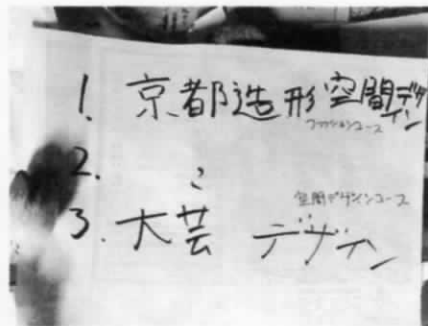 1. 京都造形空間デザイン
ファッションコース
2. 〻
空間デザインコース
3. 大芸 デザイン